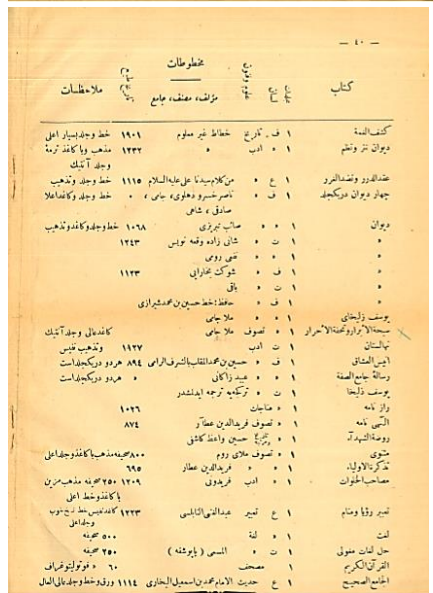 — ٤٠ —
مخطوطات
كتاب مجلدات لسان علوم وفنون مؤلف، مصنف، جامع تاريخ طبع ملاحظات
كشف الغمة ١ ف تاريخ خطاط غير معلوم ١٩٠١ خط وجلد بسيار اعلى
ديوان نثر ونظم ١ » ادب » ١٢٣٢ مذهب وبا كاغذ ترمة
وجلد آنتيك
عقدالدرر ونضدالغرر ١ ع » من كلام سيدنا على عليه السلام ١١١٥ خط وجلد وتذهيب
چهار ديوان دريكجلد ١ ف » ناصر خسرو دهلوى، جامى، » خط وجلد وكاغد اعلا
صادقى، شاهى
ديوان ١ » » صائب تبريزى ١٠٦٨ خط وجلد وكاغد وتذهيب
» ١ ت » شانى زاده وقعه نويس ١٢٤٣
» ١ » » نفعى رومى
» ١ ف » شوكت بخارايى ١١٢٣
» ١ ت » باقى
» ١ ف » حافظ؛ خط حسين بن محمد شيرازى
يوسف زليخاى ١ » » ملا جامى
سبحة الأبرار وتحفة الأحرار ١ » تصوف ملا جامى كاغد عالى وجلد آنتيك
نهالستان ١ ت ادب ١٩٢٧ وتذهيب نفيس
انيس العشاق ١ ف » حسين بن محمد الملقب بالشرف الرامى ٨٩٤ هر دو دريكجلد است
رسالهٔ جامع الصفة ١ » » عبيد زاكانى » هر دو دريكجلد است
يوسف زليخا ١ ت » تركيه يه ترجمه ايدلشدر
راز نامه ١ » مناجات ١٠٢٦
الهى نامه ١ » تصوف فريدالدين عطار ٨٧٤
روضة الشهداء ١ » حسين واعظ كاشفى
مثنوى ١ » تصوف ملاى روم ٨٠٠ صحيفه مذهب با كاغذ وجلد اعلى
تذكرة الاولياء ١ » » فريدالدين عطار ٦٩٥
مصاحب الخلوات ١ » ادب فريدونى ١٢٠٩ ٢٥٠ صحيفه مذهب مزين
با كاغذ وخط اعلى
تعبير رؤيا ومنام ١ ع تعبير عبدالغنى النابلسى ١٢٢٣ كاغد نفيس خط نسخ خوب
وجلد اعلى
لغت ١ » لغة ٥٠٠ صحيفه
حل لغات مغولى ١ ت » المسمى (بايوشقه) ٢٥٠ صحيفه
القرآن الكريم ١ مصحف ٦٠ » فوتوليتوغراف
الجامع الصحيح ١ ع حديث الامام محمد بن اسمعيل البخارى ١١١٤ ورق وخط وجلد عالى العال